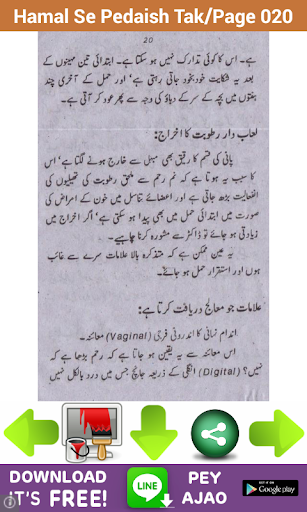 Hamal Se Pedaish Tak/Page 020
20
ہے۔ اس کا کوئی تدارک نہیں ہو سکتا ہے۔ ابتدائی تین مہینوں کے
بعد یہ شکایت خودبخود جاتی رہتی ہے' اور حمل کے آخری چند
ہفتوں میں بچہ کے سر کے دباؤ کی وجہ سے پھر عود کر آتی ہے۔
لعاب دار رطوبت کا اخراج:
پانی کی قسم کا رقیق بھی مہبل سے خارج ہونے لگتا ہے' اس
کا سبب یہ ہوتا ہے کہ فم رحم سے ملحق رطوبت کی تھیلیوں کی
افعالیت بڑھ جاتی ہے اور اعضائے تناسل میں خون کے امراض کی
صورت میں ابتدائی حمل میں بھی پیدا ہو سکتی ہے' اگر اخراج میں
زیادتی ہو جائے تو ڈاکٹر سے مشورہ کرنا چاہیے۔
یہ عین ممکن ہے کہ متذکرہ بالا علامات سرے سے غائب
ہوں اور استقرار حمل ہو جائے۔
علامات جو معالج دریافت کرتا ہے:
اندام نہانی کا اندرونی فرجی (Vaginal) معائنہ۔
اس معائنہ سے یہ یقین ہو جاتا ہے کہ رحم بڑھا ہے کہ
نہیں؟ (Digital) انگلی کے ذریعہ جانچ جس میں درد بالکل نہیں
DOWNLOAD
IT'S FREE!
LINE
PEY
AJAO
ANDROID APP ON
Google play